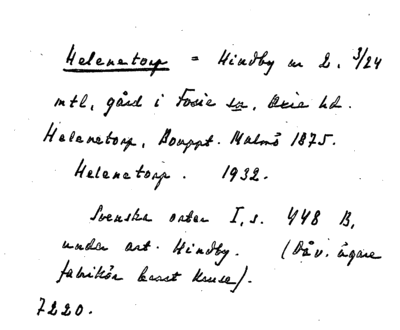 Helenetorp = Hindby nr 2, 3/24
mtl, gård i Fosie sn, Oxie hd.
Helenetorp, Bouppt. Malmö 1875.
Helenetorp. 1932.
Svenska orter I, s. 448 B,
under art. Hindby. (Dåv. ägare
fabrikör Ernst Kruse).
7220.